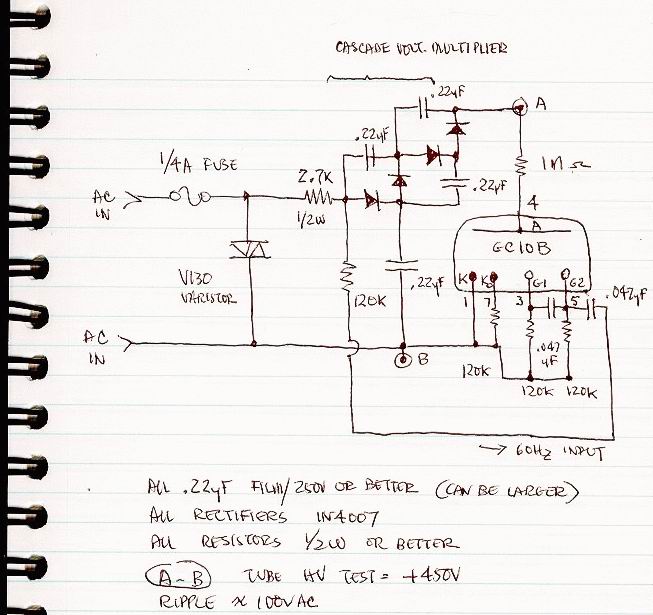 CASCADE VOLT. MULTIPLIER
.22µF
A
.22µF
1/4A FUSE
1M Ω
2.7K
.22µF
AC
IN
1/2W
4
A
GC10B
K K0 G1 G2
V130
VARISTOR
120K
.22µF
1 7 3 5
.047µF
AC
IN
B
120K
.047
µF
120K 120K
→ 60HZ INPUT
ALL .22µF FILM/250V OR BETTER (CAN BE LARGER)
ALL RECTIFIERS 1N4007
ALL RESISTORS 1/2W OR BETTER
A-B TUBE HV TEST = +450V
RIPPLE ≈ 100VAC